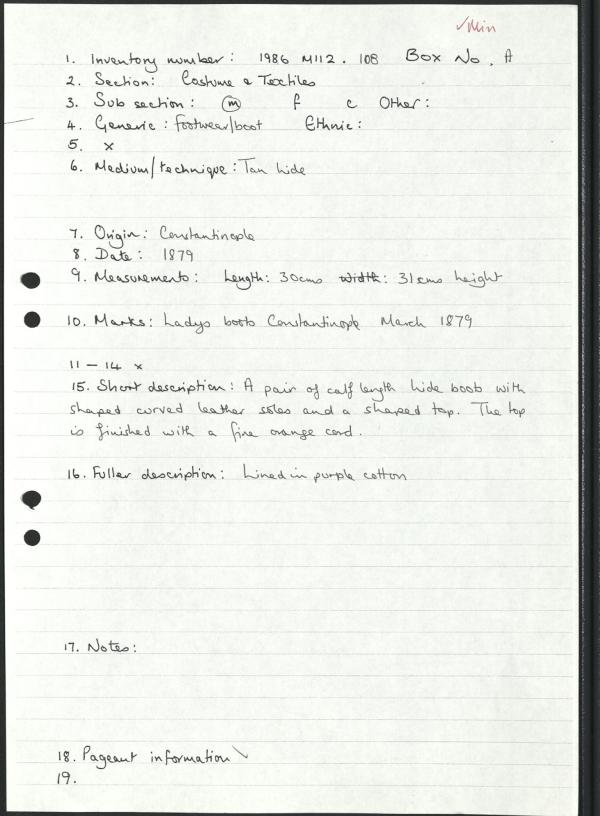 ✓Min
1. Inventory number: 1986 M112.108 Box No. A
2. Section: Costume & Textiles
3. Sub section: m f c Other:
4. Generic: footwear/boot Ethnic:
5. x
6. Medium/technique: Tan hide
7. Origin: Constantinople
8. Date: 1879
9. Measurements: Length: 30cms width: 31cms height
10. Marks: Ladys boots Constantinople March 1879
11 – 14 x
15. Short description: A pair of calf length hide boots with
shaped curved leather soles and a shaped top. The top
is finished with a fine orange cord.
16. Fuller description: Lined in purple cotton
17. Notes:
18. Pageant information
19.